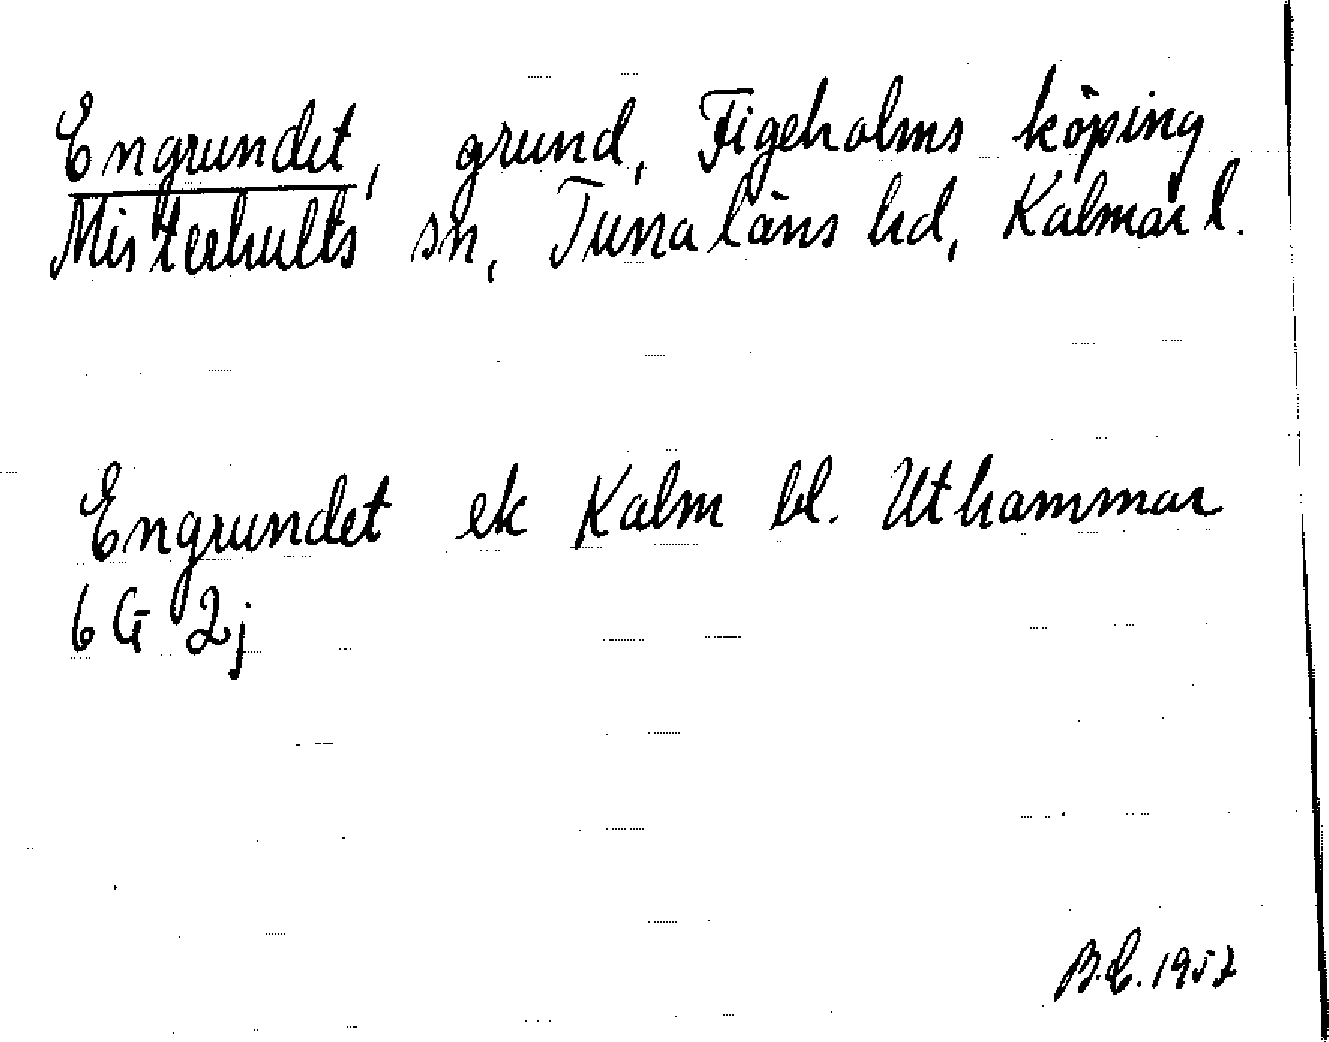 Engrundet, grund, Figeholms köping
Misterhults sn, Tunaläns hd, Kalmar l.
Engrundet ek Kalm bl. Uthammar
6 G 2j
B.E. 1957